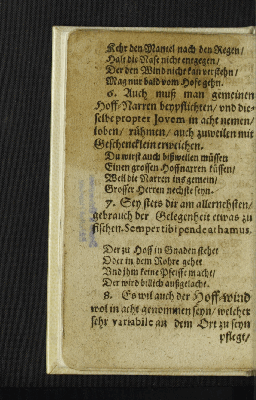 Kehr den Mantel nach den Regen/
Halt die Nase nicht entgegen/
Der den Wind nicht kan verstehn/
Mag nur bald vom Hofe gehn.
6. Auch muß man gemeinen
Hoff-Narren beypflichten/ und die-
selbe propter Jovem in acht nemen/
loben/ rühmen/ auch zuweilen mit
Geschencklein erweichen.
Du wirst auch bißweilen müssen
Einen grossen Hoffnarren küssen/
Weil die Narren ins gemein/
Grosser Herren nechste seyn.
7. Sey stets dir am allernehsten/
gebrauch der Gelegenheit etwas zu
fischen. Semper tibi pendeat hamus.
Der zu Hoff in Gnaden stehet
Oder in dem Rohre gehet
Und ihm keine Pfeiffe macht/
Der wird billich außgelacht.
8. Es wil auch der Hoff-wind
wol in acht genommen seyn/ welcher
sehr variabile an dem Ort zu seyn
pflegt/